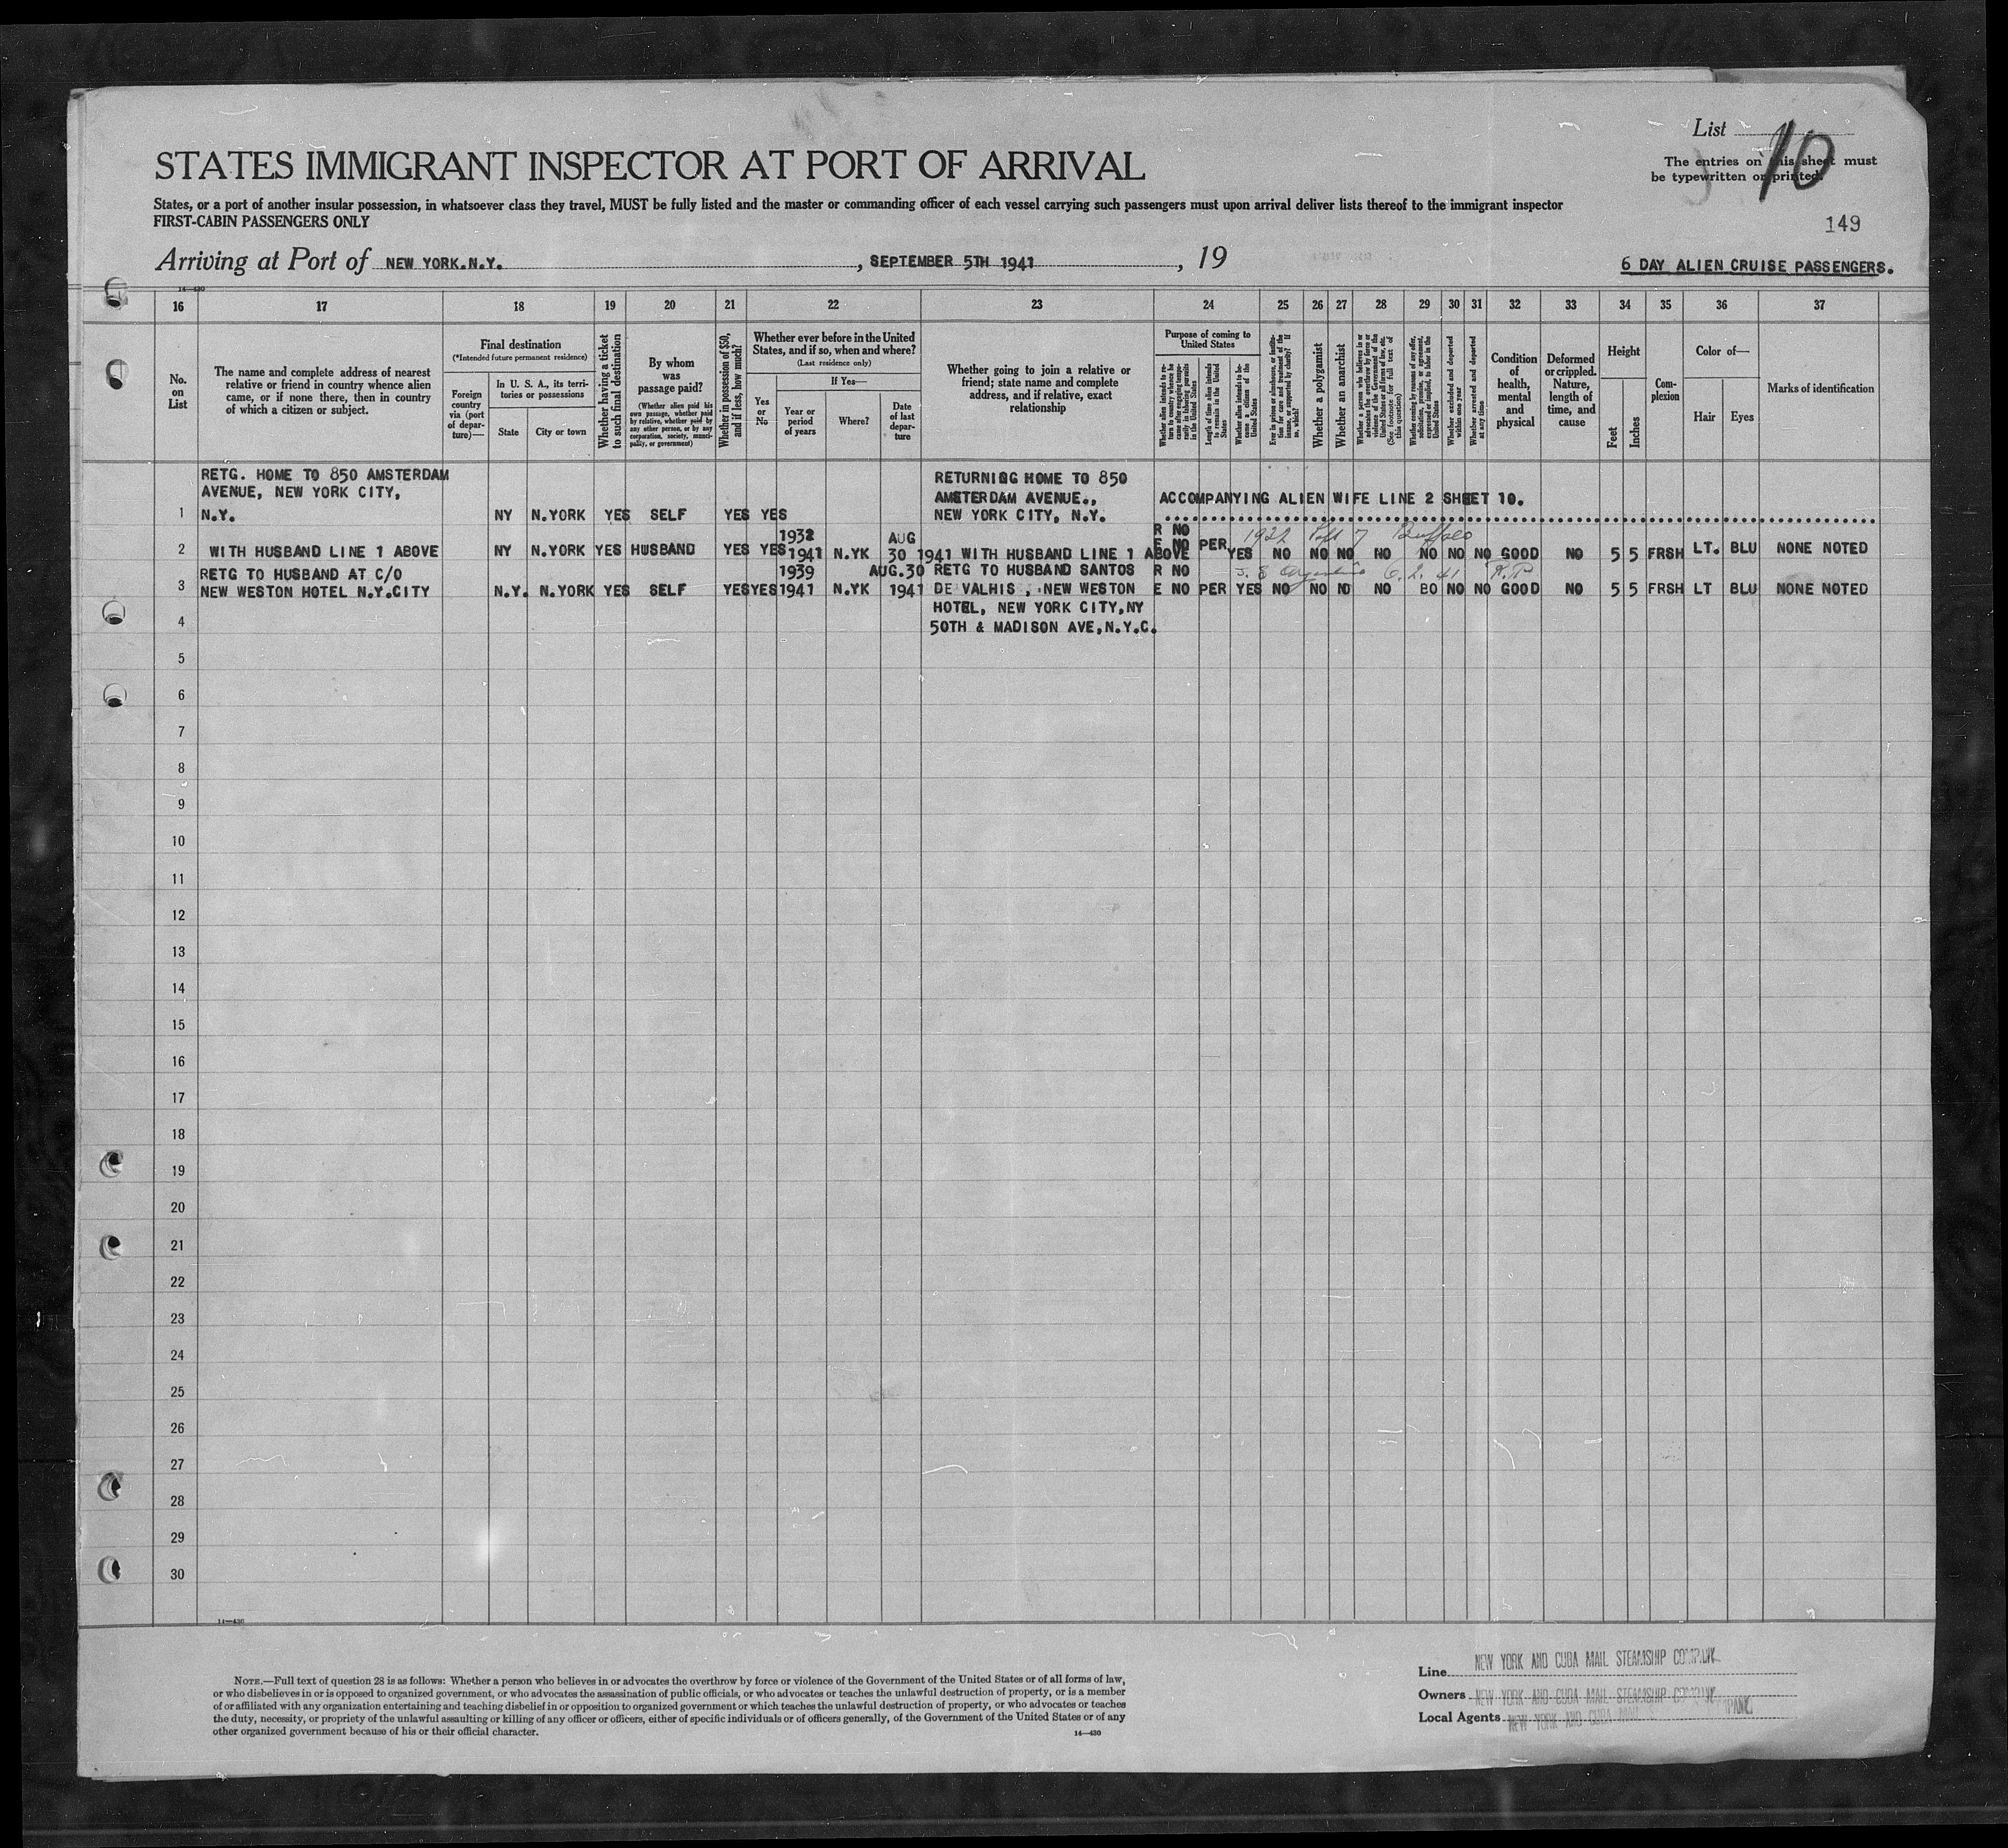 List 10
STATES IMMIGRANT INSPECTOR AT PORT OF ARRIVAL
The entries on this sheet must
be typewritten or printed.
States, or a port of another insular possession, in whatsoever class they travel, MUST be fully listed and the master or commanding officer of each vessel carrying such passengers must upon arrival deliver lists thereof to the immigrant inspector
FIRST-CABIN PASSENGERS ONLY
149
Arriving at Port of NEW YORK.N.Y. , SEPTEMBER 5TH 1941 , 19
6 DAY ALIEN CRUISE PASSENGERS.
14—430
16 17 18 19 20 21 22 23 24 25 26 27 28 29 30 31 32 33 34 35 36 37
No. on List
The name and complete address of nearest relative or friend in country whence alien came, or if none there, then in country of which a citizen or subject.
Final destination
(*Intended future permanent residence)
Foreign country via (port of departure)—
In U. S. A., its territories or possessions
State
City or town
Whether having a ticket to such final destination
By whom was passage paid?
(Whether alien paid his own passage, whether paid by relative, whether paid by any other person, or by any corporation, society, municipality, or government)
Whether in possession of $50, and if less, how much?
Whether ever before in the United States, and if so, when and where?
(Last residence only)
Yes or No
If Yes—
Year or period of years
Where?
Date of last departure
Whether going to join a relative or friend; state name and complete address, and if relative, exact relationship
Purpose of coming to United States
Whether alien intends to return to country whence he came after engaging temporarily in laboring pursuits in the United States
Length of time alien intends to remain in the United States
Whether alien intends to become a citizen of the United States
Ever in prison or almshouse, or institution for care and treatment of the insane, or supported by charity? If so, which?
Whether a polygamist
Whether an anarchist
Whether a person who believes in or advocates the overthrow by force or violence of the Government of the United States or all forms of law, etc. (See footnote for full text of this question)
Whether coming by reasons of any offer, solicitation, promise, or agreement, expressed or implied, to labor in the United States
Whether excluded and deported within one year
Whether arrested and deported at any time
Condition of health, mental and physical
Deformed or crippled. Nature, length of time, and cause
Height
Feet
Inches
Complexion
Color of—
Hair
Eyes
Marks of identification
RETG. HOME TO 850 AMSTERDAM RETURNIGG HOME TO 850
AVENUE, NEW YORK CITY, AMSTERDAM AVENUE., ACCOMPANYING ALIEN WIFE LINE 2 SHEET 10.
1 N.Y. NY N.YORK YES SELF YES YES NEW YORK CITY, N.Y.
1932 AUG R NO 1922 7 Buffalo
2 WITH HUSBAND LINE 1 ABOVE NY N.YORK YES HUSBAND YES YES 1941 N.YK 30 1941 WITH HUSBAND LINE 1 ABOVE E NO PER YES NO NO NO NO NO NO NO GOOD NO 5 5 FRSH LT. BLU NONE NOTED
RETG TO HUSBAND AT C/O 1939 AUG.30 RETG TO HUSBAND SANTOS R NO Argentina 6. 2. 41
3 NEW WESTON HOTEL N.Y.CITY N.Y. N.YORK YES SELF YES YES 1941 N.YK 1941 DE VALHIS , NEW WESTON E NO PER YES NO NO NO NO NO NO GOOD NO 5 5 FRSH LT BLU NONE NOTED
HOTEL, NEW YORK CITY,NY
4 50TH & MADISON AVE,N.Y.C.
5
6
7
8
9
10
11
12
13
14
15
16
17
18
19
20
21
22
23
24
25
26
27
28
29
30
14—430
NOTE.—Full text of question 28 is as follows: Whether a person who believes in or advocates the overthrow by force or violence of the Government of the United States or of all forms of law,
or who disbelieves in or is opposed to organized government, or who advocates the assassination of public officials, or who advocates or teaches the unlawful destruction of property, or is a member
of or affiliated with any organization entertaining and teaching disbelief in or opposition to organized government or which teaches the unlawful destruction of property, or who advocates or teaches
the duty, necessity, or propriety of the unlawful assaulting or killing of any officer or officers, either of specific individuals or of officers generally, of the Government of the United States or of any
other organized government because of his or their official character.
14—430
Line NEW YORK AND CUBA MAIL STEAMSHIP COMPANY
Owners NEW YORK AND CUBA MAIL STEAMSHIP COMPANY
Local Agents NEW YORK AND CUBA MAIL